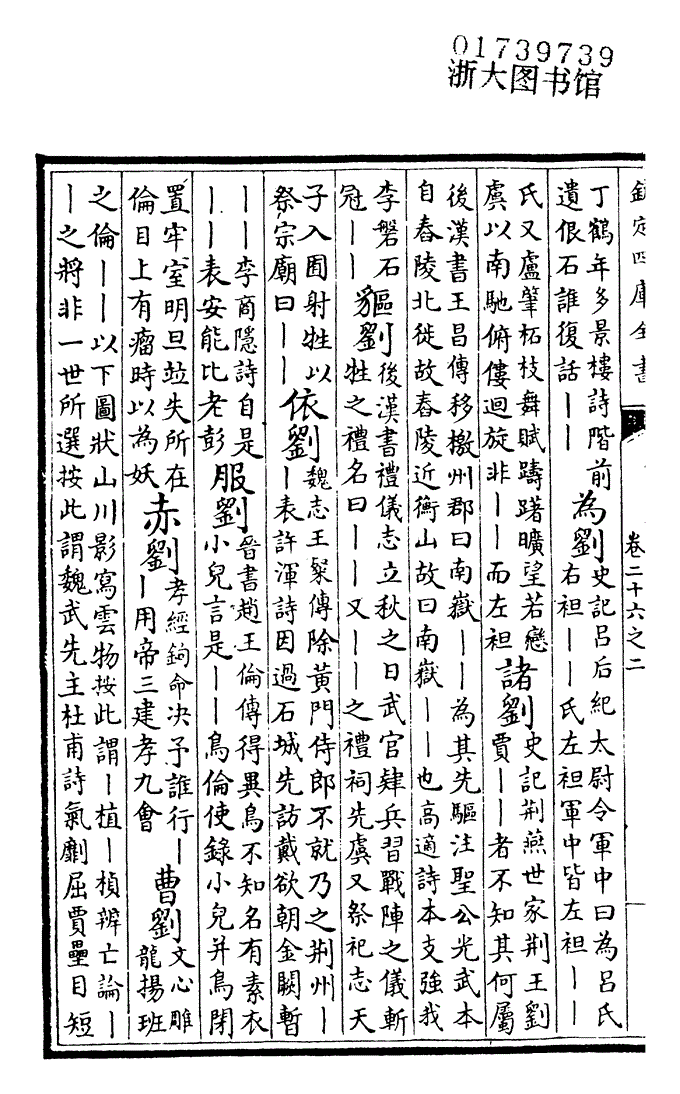 01739739
浙大图书馆
欽定四庫全書
卷二十六之二
丁鶴年多景樓詩階前
遺佷石誰復話｜｜
為劉
史記呂后紀太尉令軍中曰為呂氏
右袒｜｜氏左袒軍中皆左袒｜｜
氏又盧肇柘枝舞賦躊躇曠望若戀
虞以南馳俯僂迴旋非｜｜而左袒
諸劉
史記荆燕世家荆王劉
賈｜｜者不知其何屬
後漢書王昌傳移檄州郡曰南嶽｜｜為其先驅注聖公光武本
自舂陵北徙故舂陵近衡山故曰南嶽｜｜也高適詩本支強我
李磐石
冠｜｜
貙劉
後漢書禮儀志立秋之日武官肄兵習戰陣之儀斬
牲之禮名曰｜｜又｜｜之禮祠先虞又祭祀志天
子入囿射牲以
祭宗廟曰｜｜
依劉
魏志王粲傳除黄門侍郎不就乃之荆州｜
｜表許渾詩因過石城先訪戴欲朝金闕暫
｜｜李商隱詩自是
｜｜表安能比老彭
服劉
晉書趙王倫傳得異鳥不知名有素衣
小兒言是｜｜鳥倫使錄小兒并鳥閉
置牢室明旦竝失所在
倫目上有瘤時以為妖
赤劉
孝經鉤命决予誰行｜
｜用帝三建孝九會
曹劉
文心雕
龍揚班
之倫｜｜以下圖狀山川影寫雲物按此謂｜植｜楨辨亡論｜
｜之將非一世所選按此謂魏武先主杜甫詩氣劘屈賈壘目短